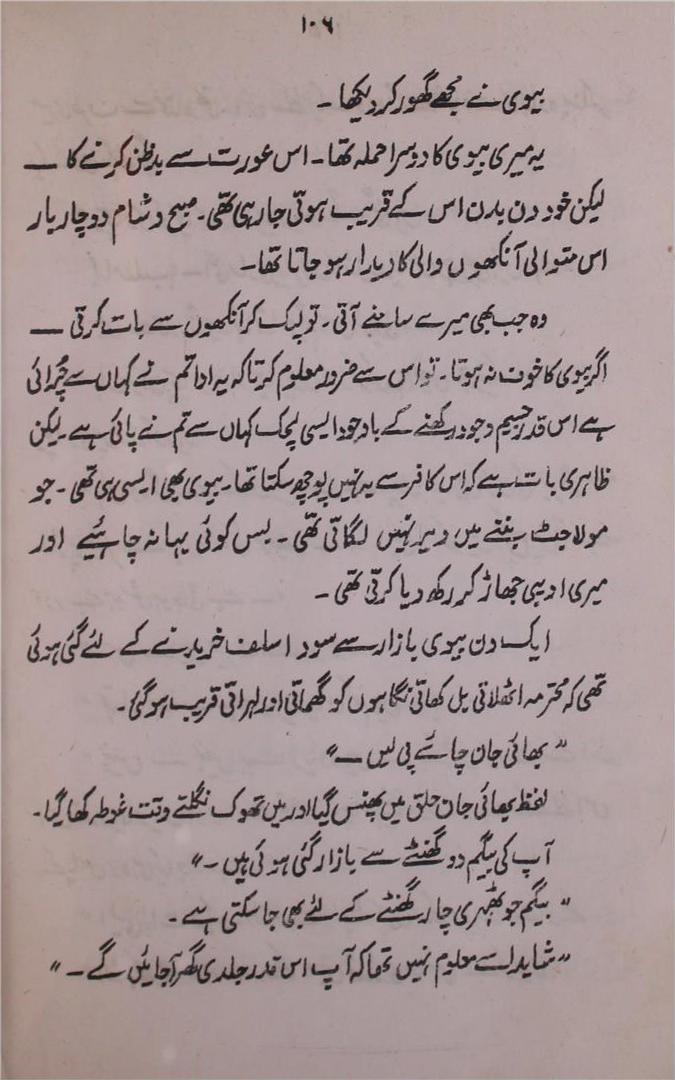 ۱۰۶
بیوی نے مجھے گھور کر دیکھا ۔
یہ میری بیوی کا دوسرا حملہ تھا ۔ اس عورت سے بدظن کرنے کا ــــ
لیکن خود دن بدن اس کے قریب ہوتی جا رہی تھی ۔ صبح و شام دو چار بار
اس متوالی آنکھوں والی کا دیدار ہو جاتا تھا ۔
وہ جب بھی میرے سامنے آتی ۔ تو لپک کر آنکھوں سے بات کرتی ــــ
اگر بیوی کا خوف نہ ہوتا ۔ تو اس سے ضرور معلوم کرتا کہ یہ ادا تم نے کہاں سے چُرائی
ہے اس قدر جسیم وجود رکھنے کے باوجود ایسی لچک کہاں سے تم نے پائی ہے ۔ لیکن
ظاہری بات ہے کہ اس کافر سے یہ نہیں پوچھ سکتا تھا ۔ بیوی بھی ایسی ہی تھی ۔ جو
مولا جٹ بننے میں دیر نہیں لگاتی تھی ۔ بس کوئی بہانہ چاہئیے اور
میری ادیبی جھاڑ کر رکھ دیا کرتی تھی ۔
ایک دن بیوی بازار سے سودا سلف خریدنے کے لئے گئی ہوئی
تھی کہ محترمہ اٹھلاتی بل کھاتی نگاہوں کو گھماتی اور لہراتی قریب ہو گئی ۔
" بھائی جان چائے پی لیں ــــ "
لفظ بھائی جان حلق میں پھنس گیا اور میں تھوک نگلتے وقت غوطہ کھا گیا ۔
آپ کی بیگم دو گھنٹے سے بازار گئی ہوئی ہیں ۔ "
" بیگم جو ٹھہری چار گھنٹے کے لئے بھی جا سکتی ہے ۔
" شاید اسے معلوم نہیں تھا کہ آپ اس قدر جلدی گھر آ جائیں گے ۔ "